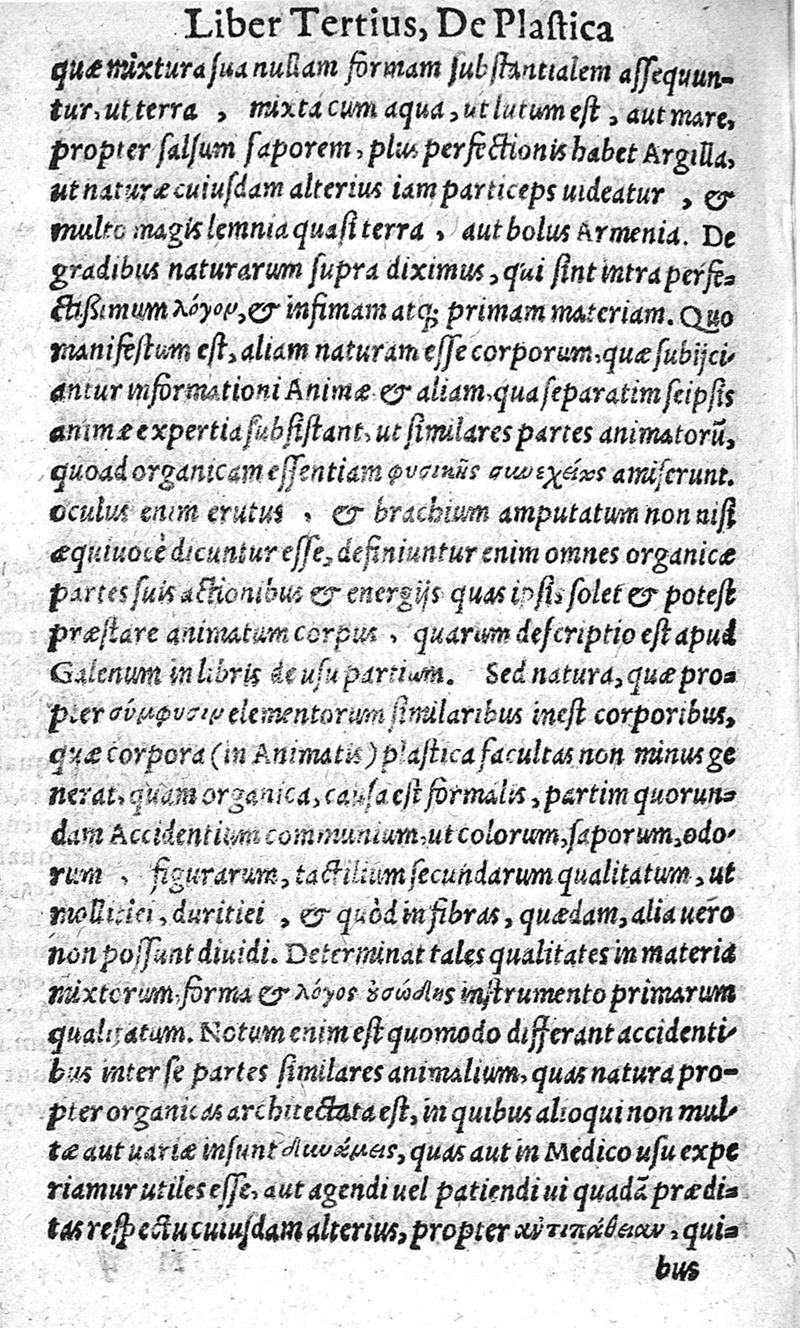 Liber Tertius, De Plaſtica
quæ mixtura sua nullam formam ſubſtantialem aſſequun-
tur, ut terra , mixta cum aqua, ut lutum eſt, aut mare,
propter ſalſum ſaporem, plus perfectionis habet Argilla,
ut naturæ cuiuſdam alterius iam particeps uideatur , &
multo magis lemnia quaſi terra , aut bolus Armenia. De
gradibus naturarum ſupra diximus, qui ſint intra perfe-
ctiſsimum λόγον, & infimam atq; primam materiam. Quo
manifeſtum eſt, aliam naturam eſſe corporum, quæ ſubijci-
antur informationi Animæ & aliam, qua ſeparatim ſeipſis
animæ expertia ſubſiſtant, ut ſimilares partes animatorũ,
quoad organicam eſſentiam φυσικῆς συνεχείας amiſerunt.
oculus enim erutus , & brachium amputatum non niſi
æquiuocè dicuntur eſſe, definiuntur enim omnes organicæ
partes ſuis actionibus & energijs quas ipſis ſolet & poteſt
præſtare animatum corpus , quarum deſcriptio eſt apud
Galenum in libris de uſu partium. Sed natura, quæ pro-
pter σύμφυσιν elementorum ſimilaribus ineſt corporibus,
quæ corpora (in Animatis) plaſtica facultas non minus ge
nerat, quam organica, cauſa eſt formalis, partim quorun-
dam Accidentium communium, ut colorum, ſaporum, odo-
rum , figurarum, tactilium ſecundarum qualitatum, ut
mollitiei, duritiei , & quòd in fibras, quædam, alia uero
non poſſunt diuidi. Determinat tales qualitates in materia
mixtorum, forma & λόγος οὐσιώδης inſtrumento primarum
qualitatum. Notum enim eſt quomodo differant accidenti-
bus inter ſe partes ſimilares animalium, quas natura pro-
pter organicas architectata eſt, in quibus alioqui non mul-
tæ aut uariæ inſunt δυνάμεις, quas aut in Medico uſu expe
riamur utiles eſſe, aut agendi uel patiendi ui quadã prædi-
tas reſpectu cuiuſdam alterius, propter ἀντιπάθειαν, qui-
bus